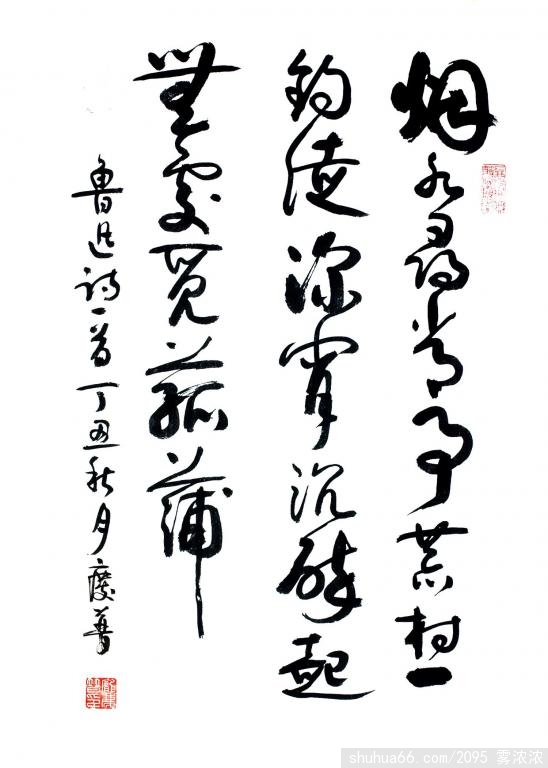 烟水尋常事荒村一
钓徒深宵沉醉起
無處覓菰蒲
魯迅詩一首丁丑秋月慶
shuhua66.com/2095 雾浓浓